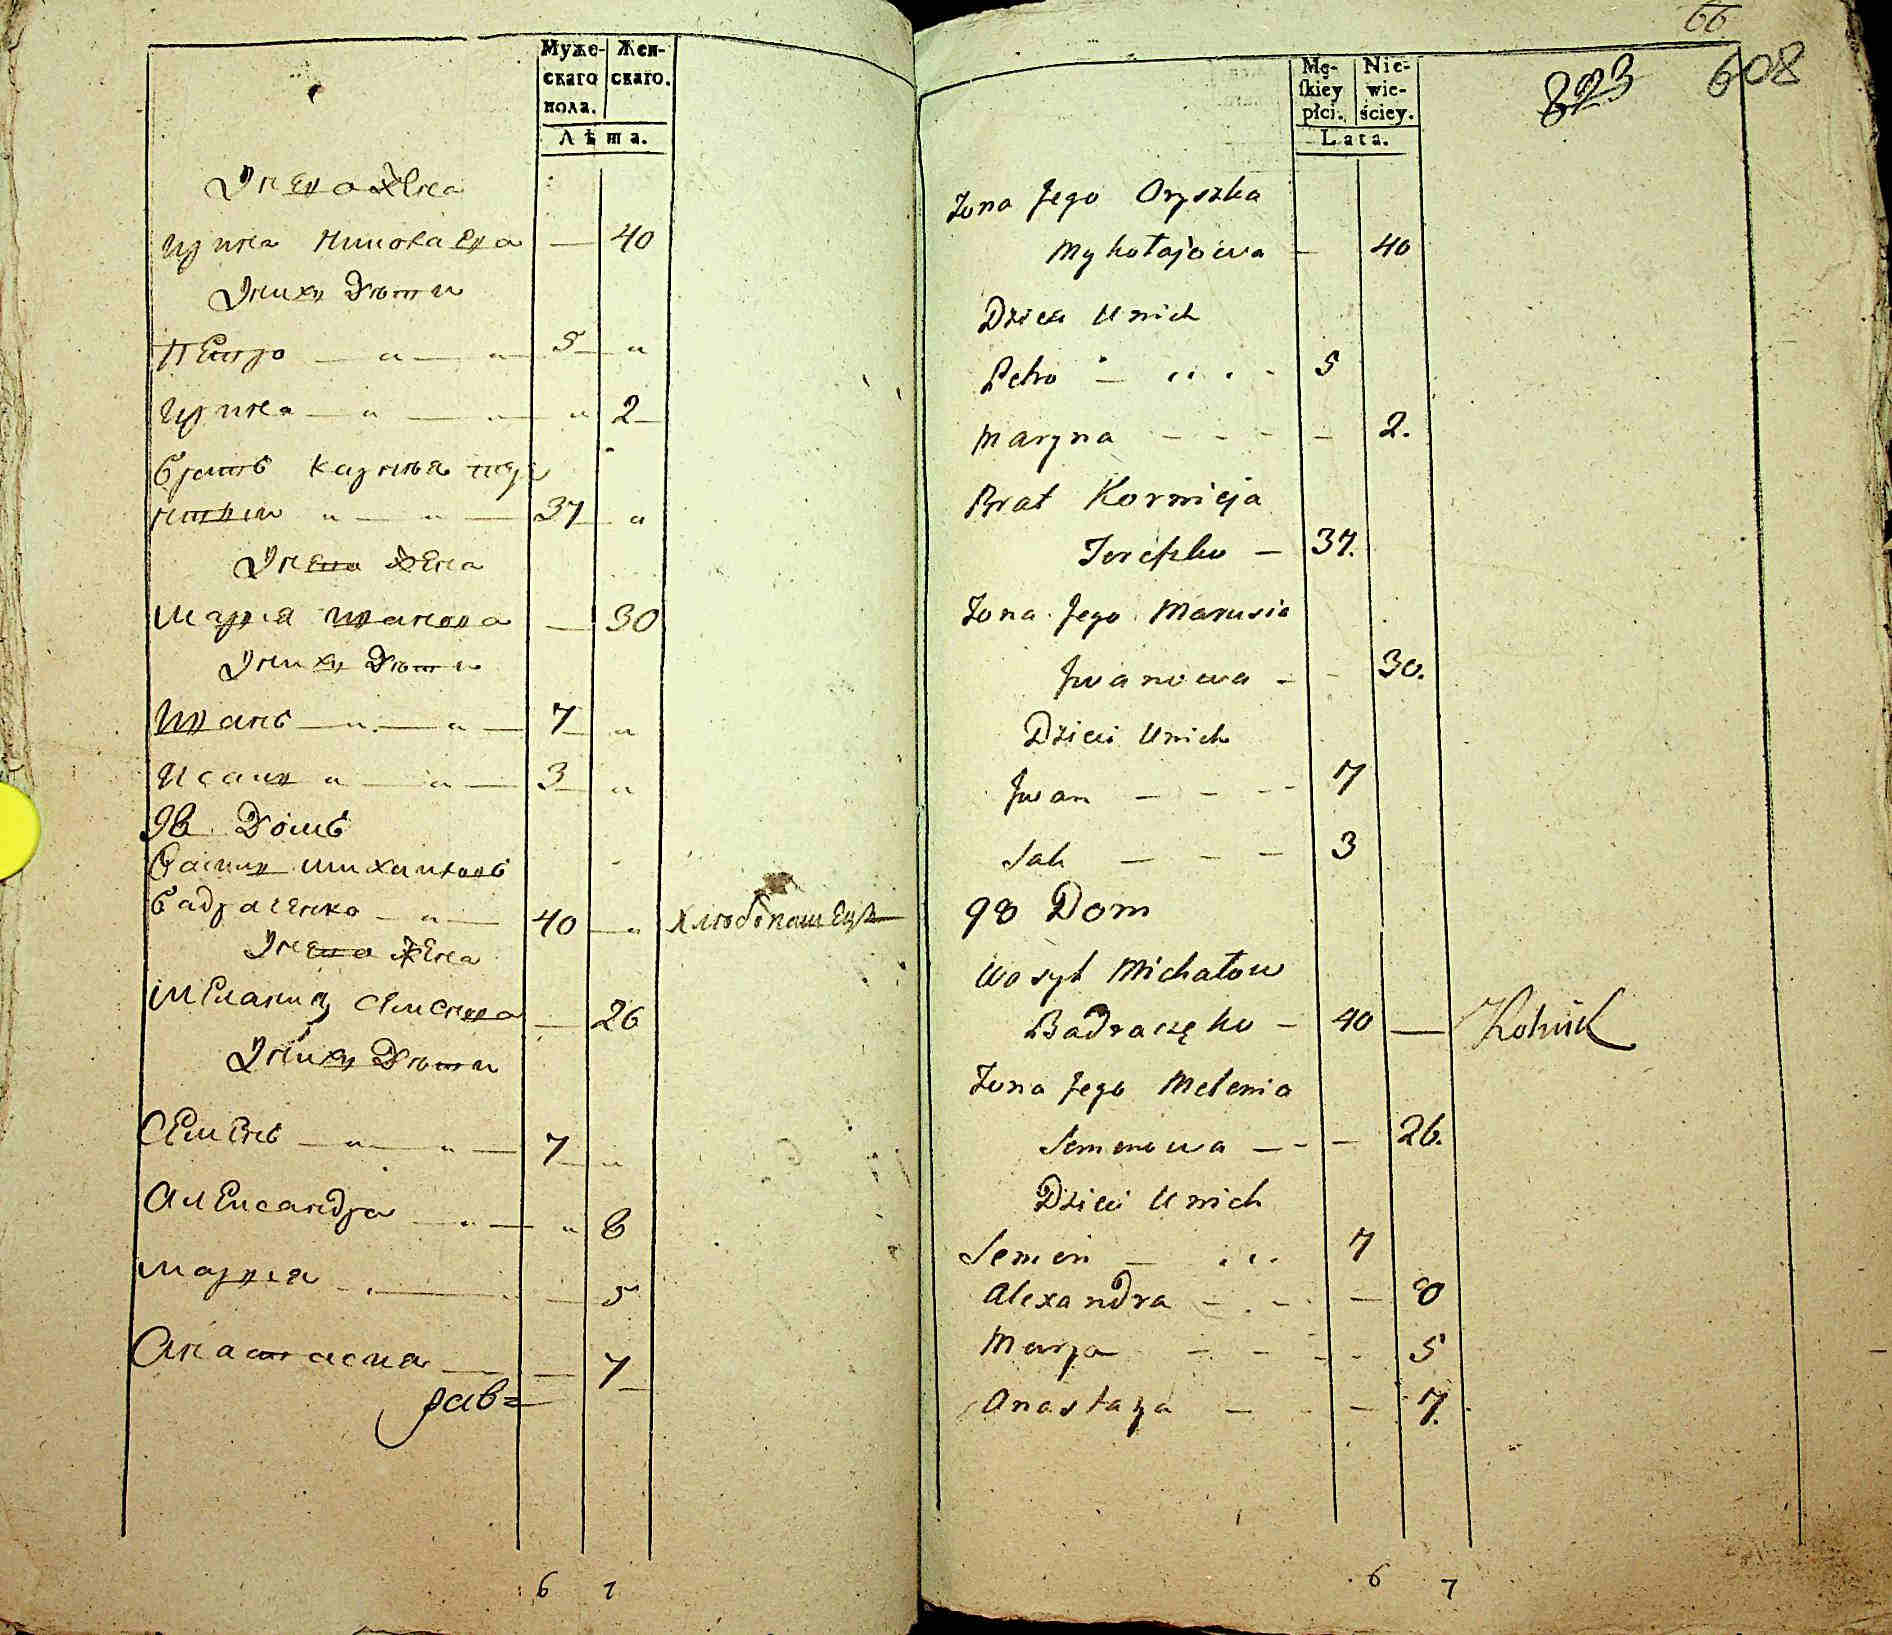 Муже-
скаго
пола.
Жен-
скаго.
Лѣта.
У него жена
Ирина Николаева — 40
У них Дѣти
Петро 5
Ирина 2
братъ
37
У него жена
Марѳа Иванова — 30
У них Дѣти
Иванъ 7
Исаия 3
98 Домъ
Васили Михаиловъ
Бадраченко 40 хлѣбопашецъ
У него жена
Мелания Семенова — 26
У них Дѣти
Семенъ 7
Александра 8
Марѳа 5
Анастасия 7
6 7
66
Mę-
skiey
płci.
Nie-
wie-
ściey.
Lata.
823 608
Zona Jego Oryszka
Mykołajowa — 40
Dzieci Unich
Petro 5
Maryna 2.
Brat Kornieja
37.
Zona Jego Marusia
Jwanowa 30.
Dzieci Unich
Jwan 7
Sak 3
98 Dom
Wasyl Michałow
Badraczęko 40 — Rolnik
Zona Jego Melenia
Semenowa 26.
Dzieci Unich
Semen 7
Alexandra 8
Marya 5
Anastazya 7.
6 7